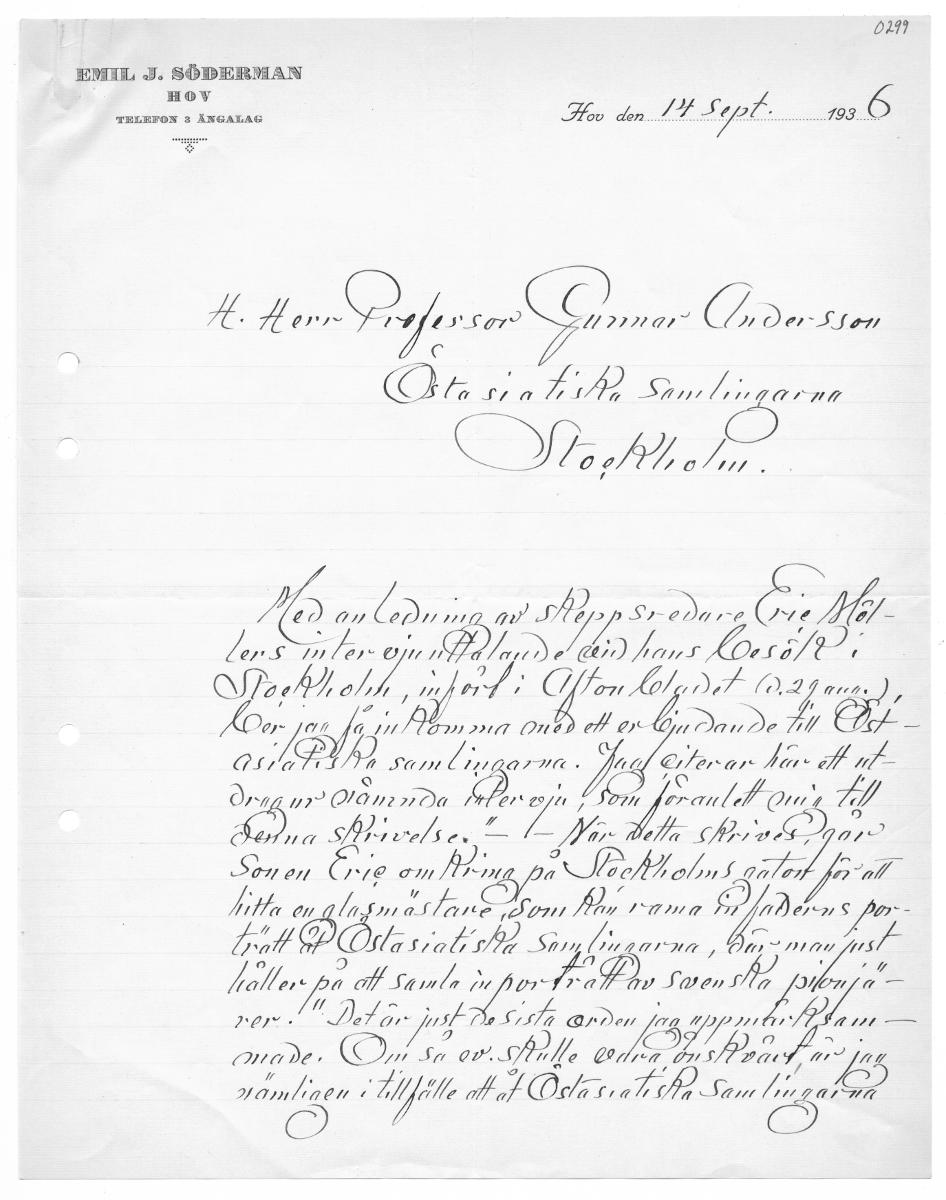 0299
EMIL J. SÖDERMAN
HOV
TELEFON 3 ÄNGALAG
Hov den 14 Sept. 1936
H. Herr Professor Gunnar Andersson
Östasiatiska samlingarna
Stockholm.
Med anledning av skeppsredare Eric Möl-
lers intervjuuttalande vid hans besök i
Stockholm, infört i Aftonbladet (d. 29 aug.),
ber jag få inkomma med ett erbjudande till Öst-
asiatiska samlingarna. Jag citerar här ett ut-
drag ur nämnda intervju, som föranlett mig till
denna skrivelse. "— — När detta skrives, går
sonen Eric omkring på Stockholms gator för att
hitta en glasmästare, som kan rama in faderns por-
trätt åt Östasiatiska Samlingarna, där man just
håller på att samla in porträtt av svenska pionjä-
rer." Det är just de sista orden jag uppmärksam-
made. Om så ev. skulle vara önskvärt, är jag
nämligen i tillfälle att åt Östasiatiska Samlingarna